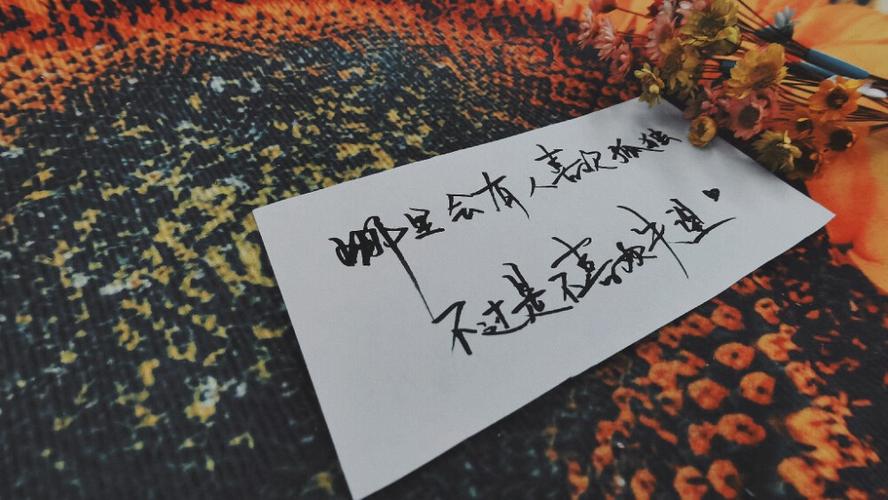 哪里会有人喜欢孤独
不过是不喜欢失望♥